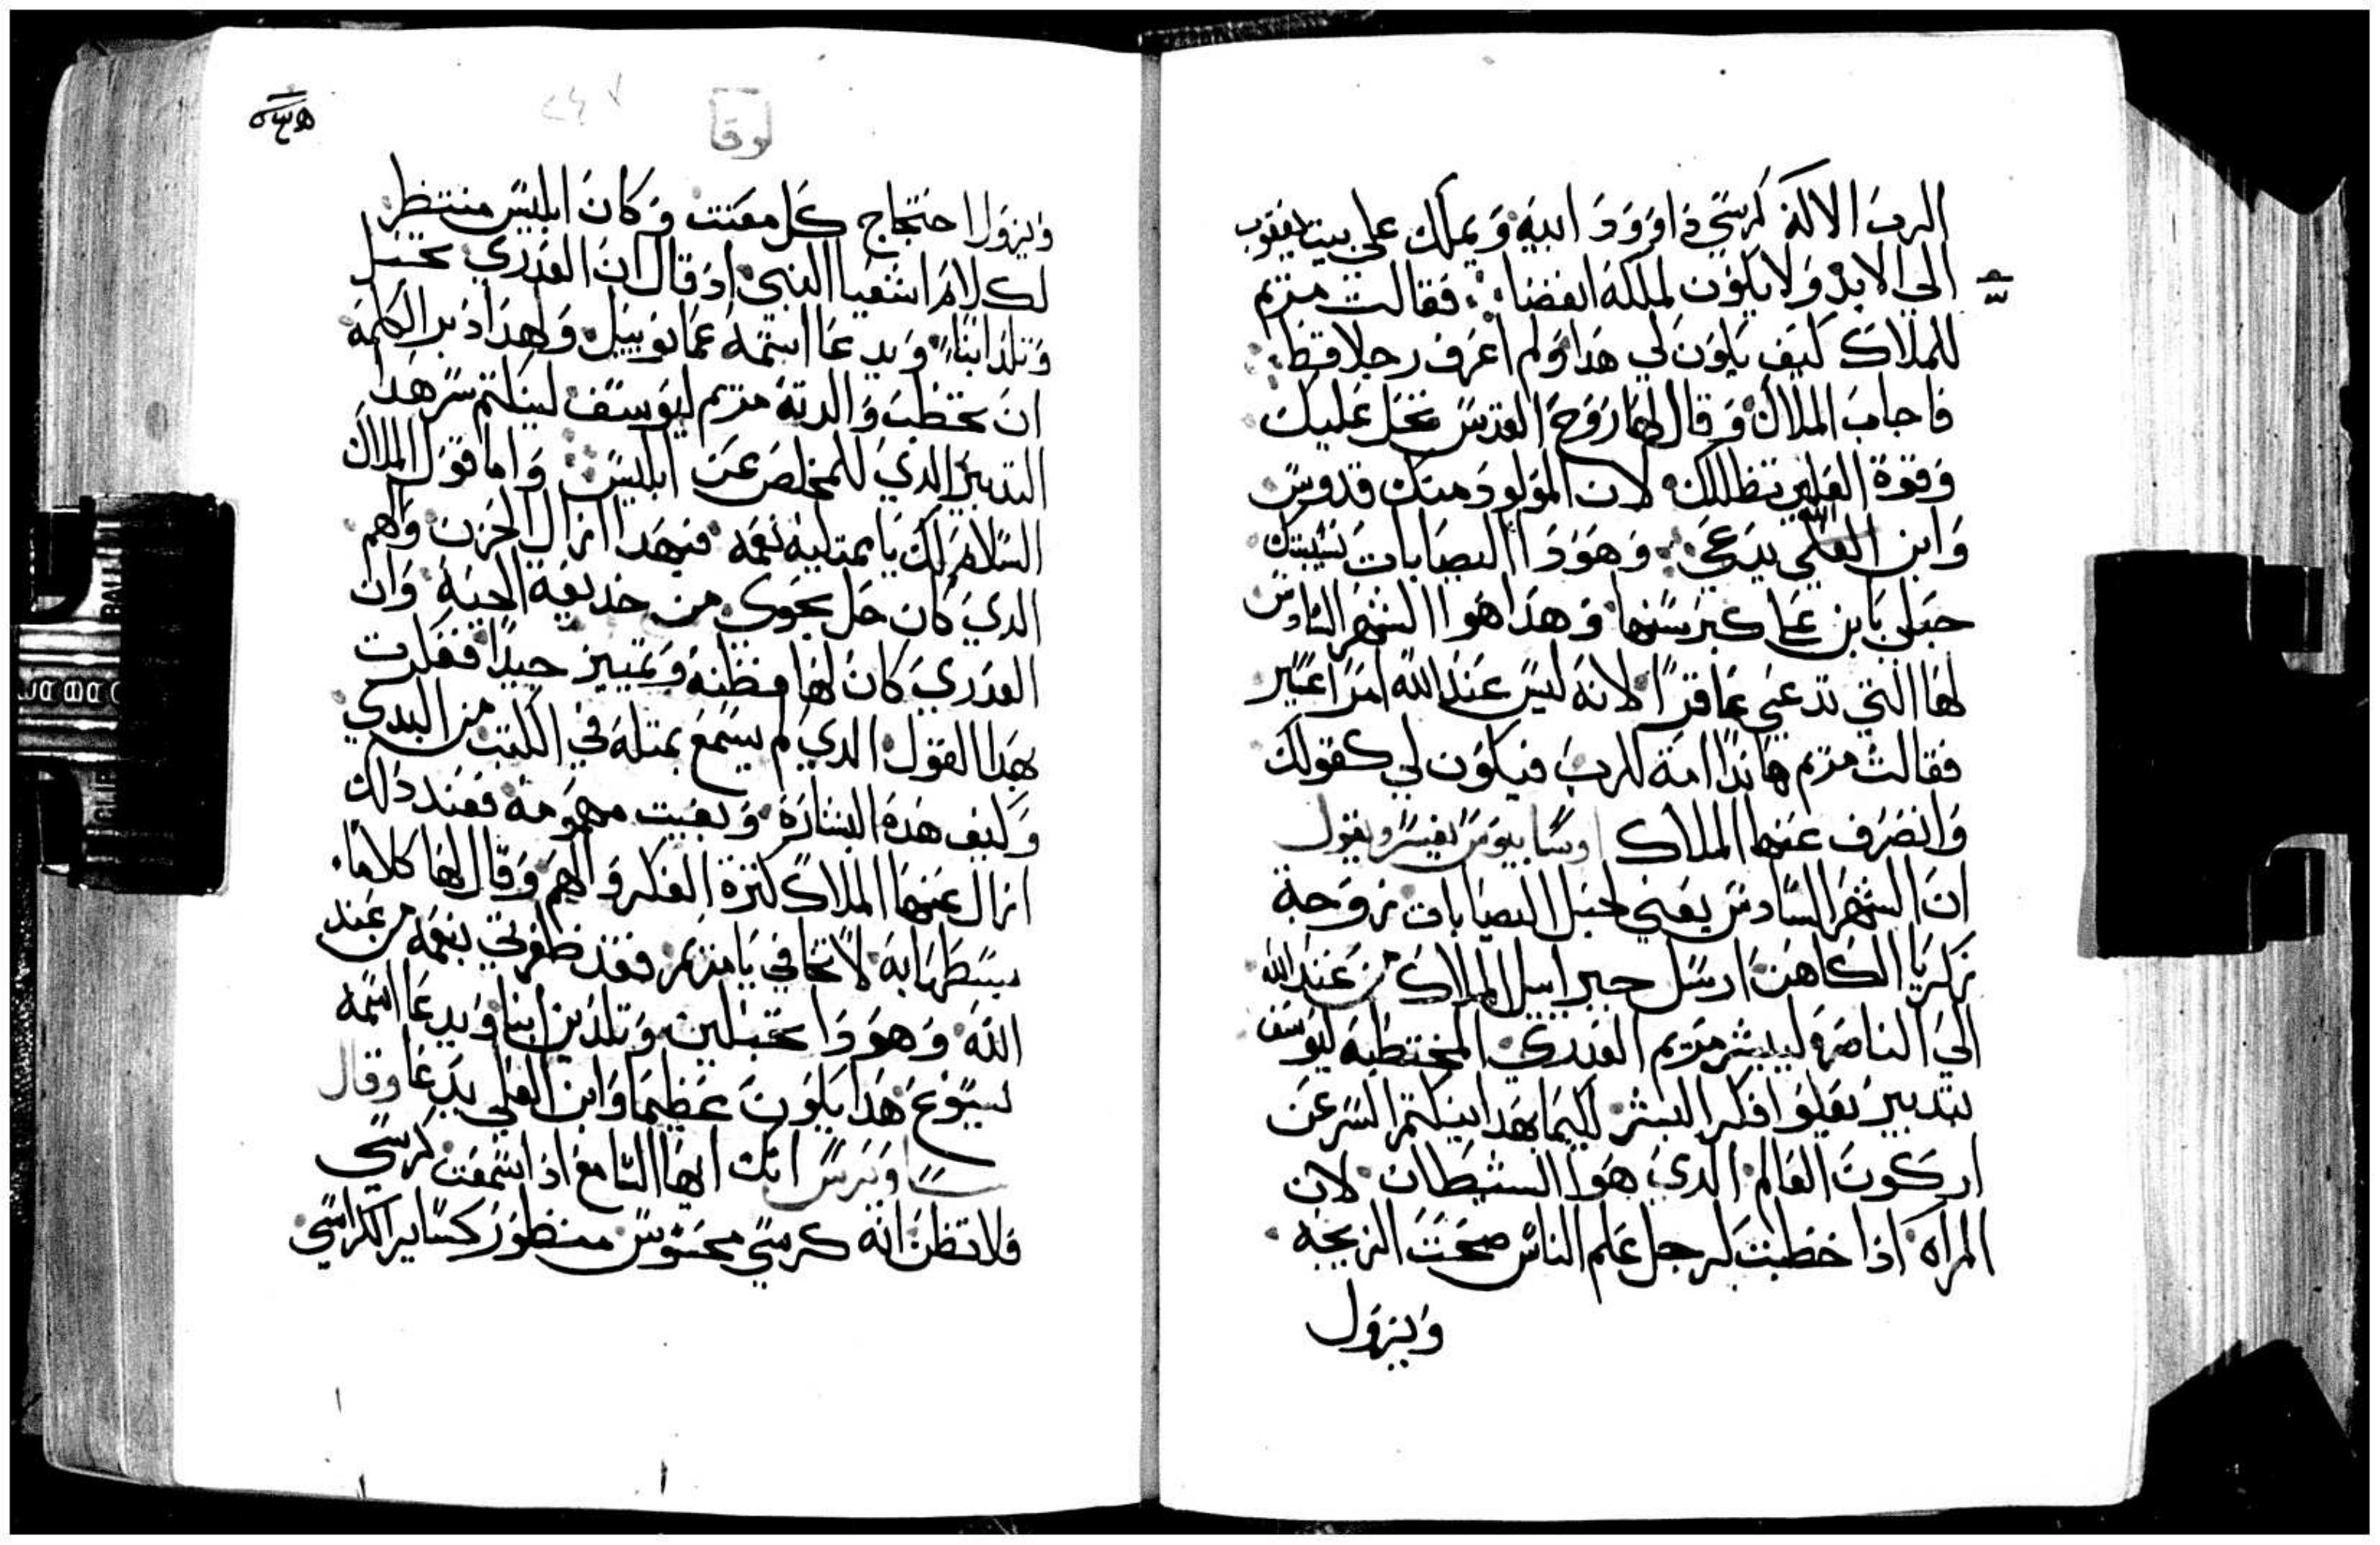 الرب الاله كرسي داوود ابيه و يملك علي بيت يعقوب
الي الابد ولا يكون لملكه انقضا فقالت مريم
للملاك كيف يكون لي هدا ولم اعرف رجلا قط
فاجاب الملاك و قال لها روح القدس تحل عليك
وقوة العلي تظللك لان المولود منك قدوس
وابن الله يدعي وهودا اليصابات نسيبتك
حبلي بابن علي كبر سنها وهدا هوا الشهر السادس
لها التي تدعي عاقرا لانه ليس عند الله امرا عسير
فقالت مريم هاندا امة للرب فيكون لي كقولك
وانصرف عنها الملاك اوسابيوس يفسر ويقول
ان الشهر السادس يعني لحبل اليصابات زوجة
زكريا الكاهن ارسل جبراييل الملاك من عند الله
الي الناصره ليبشر مريم العدري المختطبه ليوسف
بتدبير يعلوا فكر البشر لكيما بهدا ينكتم السر عن
اركون العالم الدي هوا الشيطان لان
المراه اذا خطبت لرجل علم الناس صحت الزيجه
ويزول
لوقا
٢٤٧
ويزول احتجاج كل معنت و كان ابليس منتظر
لكلام اشعيا النبي اد قال ان العدري تحبل
وتلد ابنا ويدعا اسمه عمانوييل ولهدا دبر الكلمة
ان تخطب والدته مريم ليوسف لينكتم سر هدا
التدبير الدي للمخلص عن ابليس واما قول الملاك
السلام لك يا ممتليه نعمه فبهدا ازال الحزن والهم
الدي كان حل بحوي من خديعة الحية وان
العدري كان لها فطنه وتمييز جيدا ففكرت
بهدا القول الدي لم يسمع بمثله في الكتب من البدي
وكيف هذه البشارة وبقيت مهمومة فعند دلك
ازال عنها الملاك كثرة الفكر والهم وقال لها كلاما
بسطها به لا تخافي يا مريم فقد ظفرتي بنعمه من عند
الله وهودا تحبلين وتلدين ابنا ويدعا اسمه
يسوع هدا يكون عظيما وابن العلي يدعا وقال
ساويرس انك ايها السامع اذا سمعت كرسي
فلا تظن انه كرسي محسوس منظور كساير الكراسي